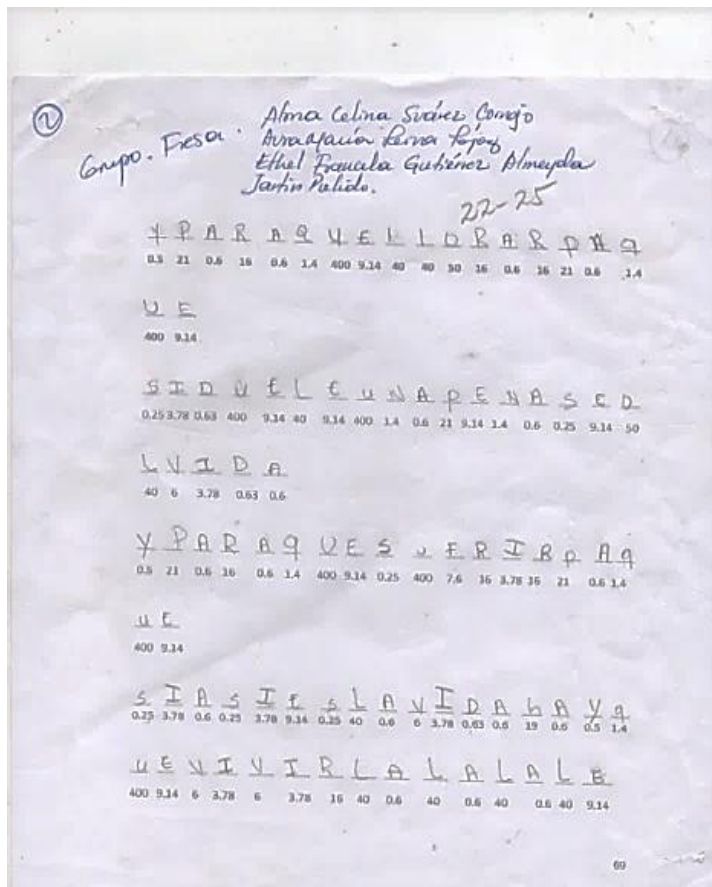 2
Grupo. Fresa. Alma Celina Suárez Cornejo
Ethel Gutiérrez Almeyda
Pulido.
22-25
Y P A R A Q U E L L O R A R P A q
0.5 21 0.6 16 0.6 1.4 400 9.14 40 40 50 16 0.6 16 21 0.6 1.4
U E
400 9.14
S I D U E L E u N A P E N A S E O
0.25 3.78 0.63 400 9.14 40 9.14 400 1.4 0.6 21 9.14 1.4 0.6 0.25 9.14 50
L V I D A
40 6 3.78 0.63 0.6
Y P A R A q U E S u F R I R p A q
0.5 21 0.6 16 0.6 1.4 400 9.14 0.25 400 7.6 16 3.78 16 21 0.6 1.4
u E
400 9.14
s I A s I E s L A V I D A h A Y q
0.25 3.78 0.6 0.25 3.78 9.14 0.25 40 0.6 6 3.78 0.63 0.6 19 0.6 0.5 1.4
u E V I V I R L A L A L A L E
400 9.14 6 3.78 6 3.78 16 40 0.6 40 0.6 40 0.6 40 9.14
69